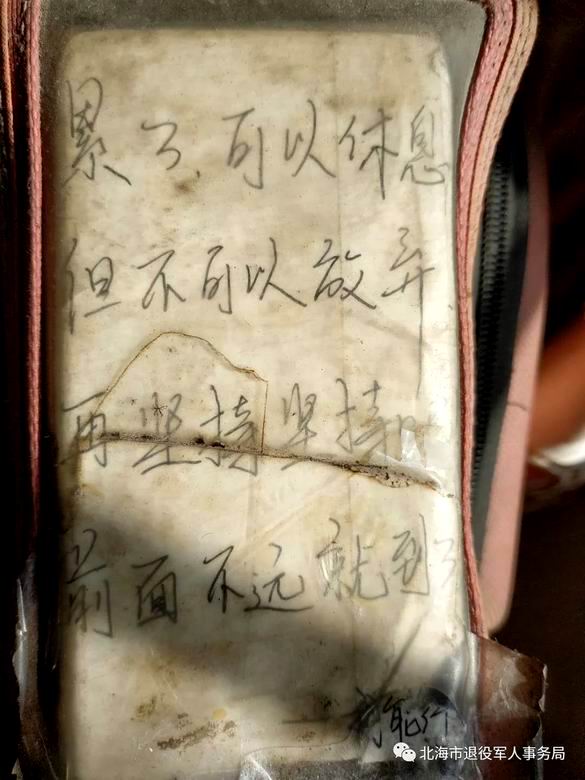 累了可以休息
但不可以放弃
再坚持坚持
前面不远就到了
北海市退役军人事务局